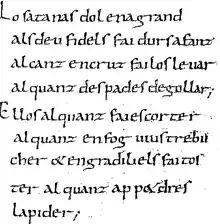 Lo satanas dol enagrand
als deu fidels fai dursafanz
alcanz encruz failos leuar
alquanz despades degollar;
Ellos alquanz faiescorter
alquanz enfog uiustrebu
cher & engradiliels faitos
ter alquanz ap p&dres
lapider;